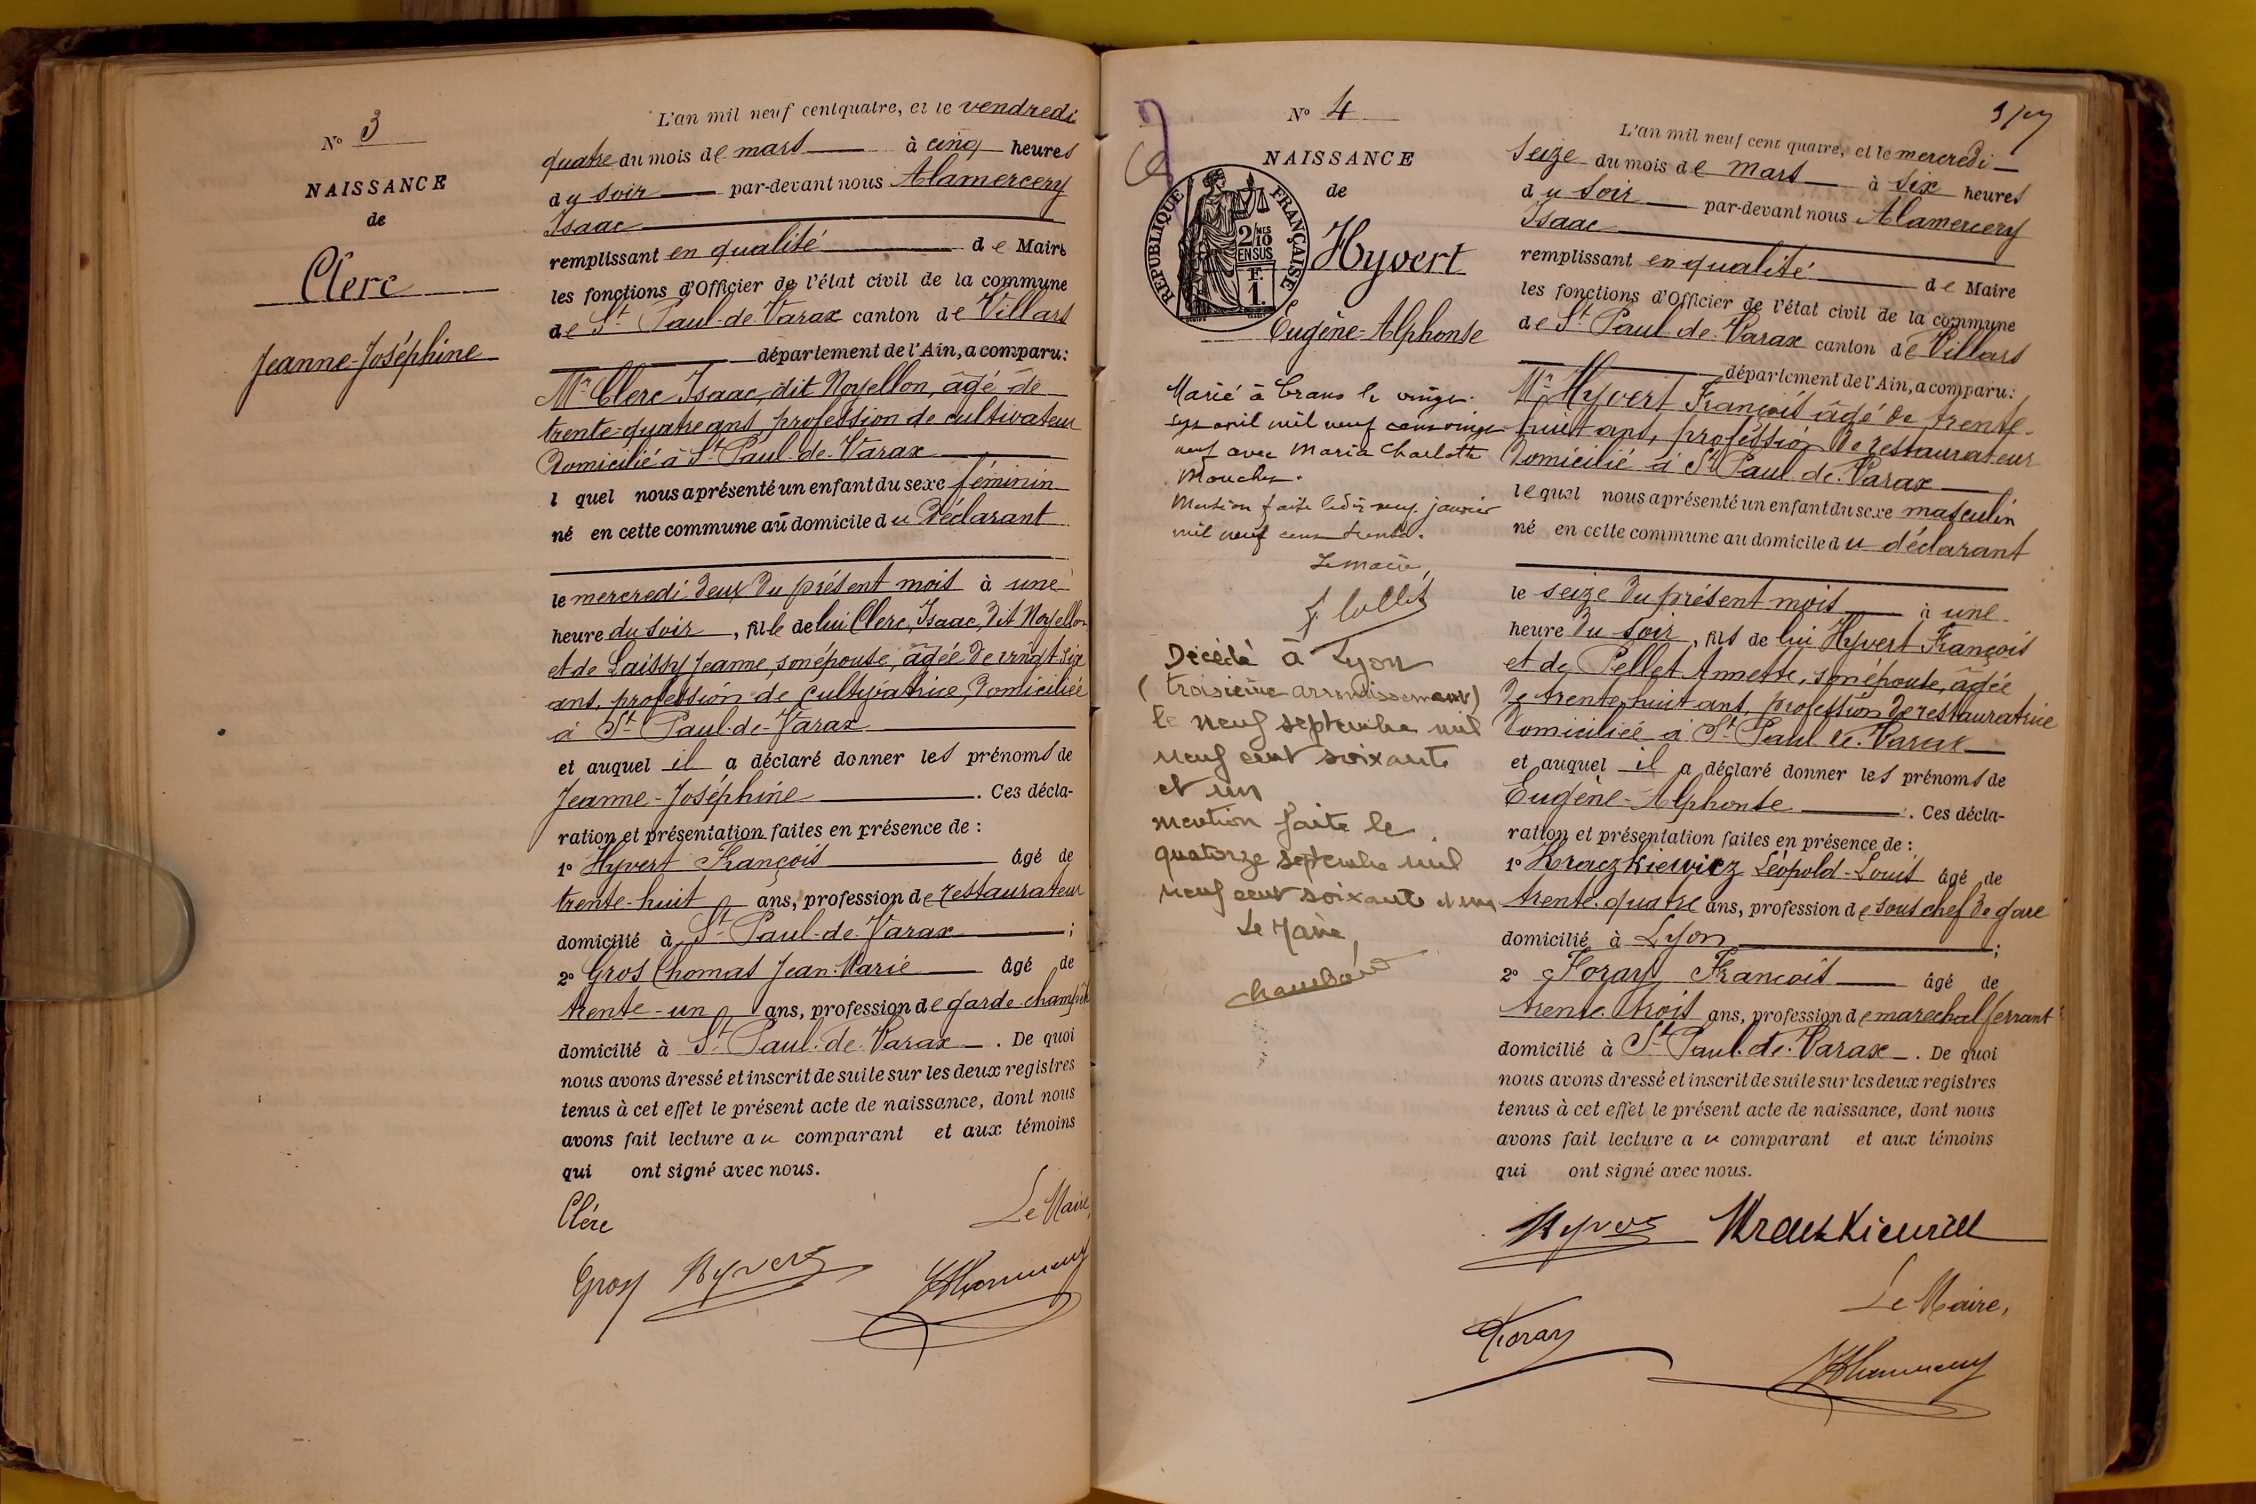 N° 3
NAISSANCE
de
Clerc
Jeanne-Joséphine
L'an mil neuf cent quatre, et le vendredi
quatre du mois de mars à cinq heures
du soir par-devant nous Alamercery
Isaac
remplissant en qualité de Maire
les fonctions d'Officier de l'état civil de la commune
de St Paul-de-Varax canton de Villars
département de l'Ain, a comparu:
Mr Clerc Isaac, dit Noyellon, âgé de
trente-quatre ans, profession de cultivateur
domicilié à St Paul-de-Varax
l quel nous a présenté un enfant du sexe féminin
né en cette commune au domicile du déclarant
le mercredi deux du présent mois à une
heure du soir, fille de lui Clerc, Isaac, dit Noyellon
et de Laissy Jeanne, son épouse, âgée de vingt-six
ans, profession de cultivatrice, domiciliée
à St Paul-de-Varax
et auquel il a déclaré donner les prénoms de
Jeanne-Joséphine. Ces décla-
ration et présentation faites en présence de :
1° Hyvert François âgé de
trente-huit ans, profession de restaurateur
domicilié à St Paul-de-Varax ;
2° Gros Thomas Jean-Marie âgé de
trente-un ans, profession de garde-champêtre
domicilié à St Paul-de-Varax. De quoi
nous avons dressé et inscrit de suite sur les deux registres
tenus à cet effet le présent acte de naissance, dont nous
avons fait lecture au comparant et aux témoins
qui ont signé avec nous.
Clérc
Le Maire,
Gros Hyvert
N° 4
NAISSANCE
de
REPUBLIQUE FRANÇAISE
2/10MES
EN SUS
F.
1.
Hyvert
Eugène-Alphonse
Marié à Crans le vingt-
sept avril mil neuf cent vingt
neuf avec Maria Charlotte
Mouchez.
Mention faite le dix neuf janvier
mil neuf cent trente.
Le maire,
Décédé à Lyon
(troisième arrondissement)
le neuf septembre mil
neuf cent soixante
et un
mention faite le
quatorze septembre mil
neuf cent soixante et un
Le Maire,
L'an mil neuf cent quatre, et le mercredi
seize du mois de mars à six heures
du soir par-devant nous Alamercery
Isaac
remplissant en qualité de Maire
les fonctions d'Officier de l'état civil de la commune
de St Paul-de-Varax canton de Villars
département de l'Ain, a comparu:
Mr Hyvert François âgé de trente-
huit ans, profession de restaurateur
domicilié à St Paul-de-Varax
lequel nous a présenté un enfant du sexe masculin
né en cette commune au domicile du déclarant
le seize du présent mois à une
heure du soir, fils de lui Hyvert François
et de Pellet Annette, son épouse, âgée
de trente-huit ans, profession de restauratrice
domiciliée à St Paul-de-Varax
et auquel il a déclaré donner les prénoms de
Eugène-Alphonse. Ces décla-
ration et présentation faites en présence de :
1° Kraczkiewicz Léopold-Louis âgé de
trente-quatre ans, profession de sous chef de gare
domicilié à Lyon ;
2° Foray François âgé de
trente-trois ans, profession de marechal ferrant
domicilié à St Paul-de-Varax. De quoi
nous avons dressé et inscrit de suite sur les deux registres
tenus à cet effet le présent acte de naissance, dont nous
avons fait lecture au comparant et aux témoins
qui ont signé avec nous.
Hyvert
Le Maire,
Foray